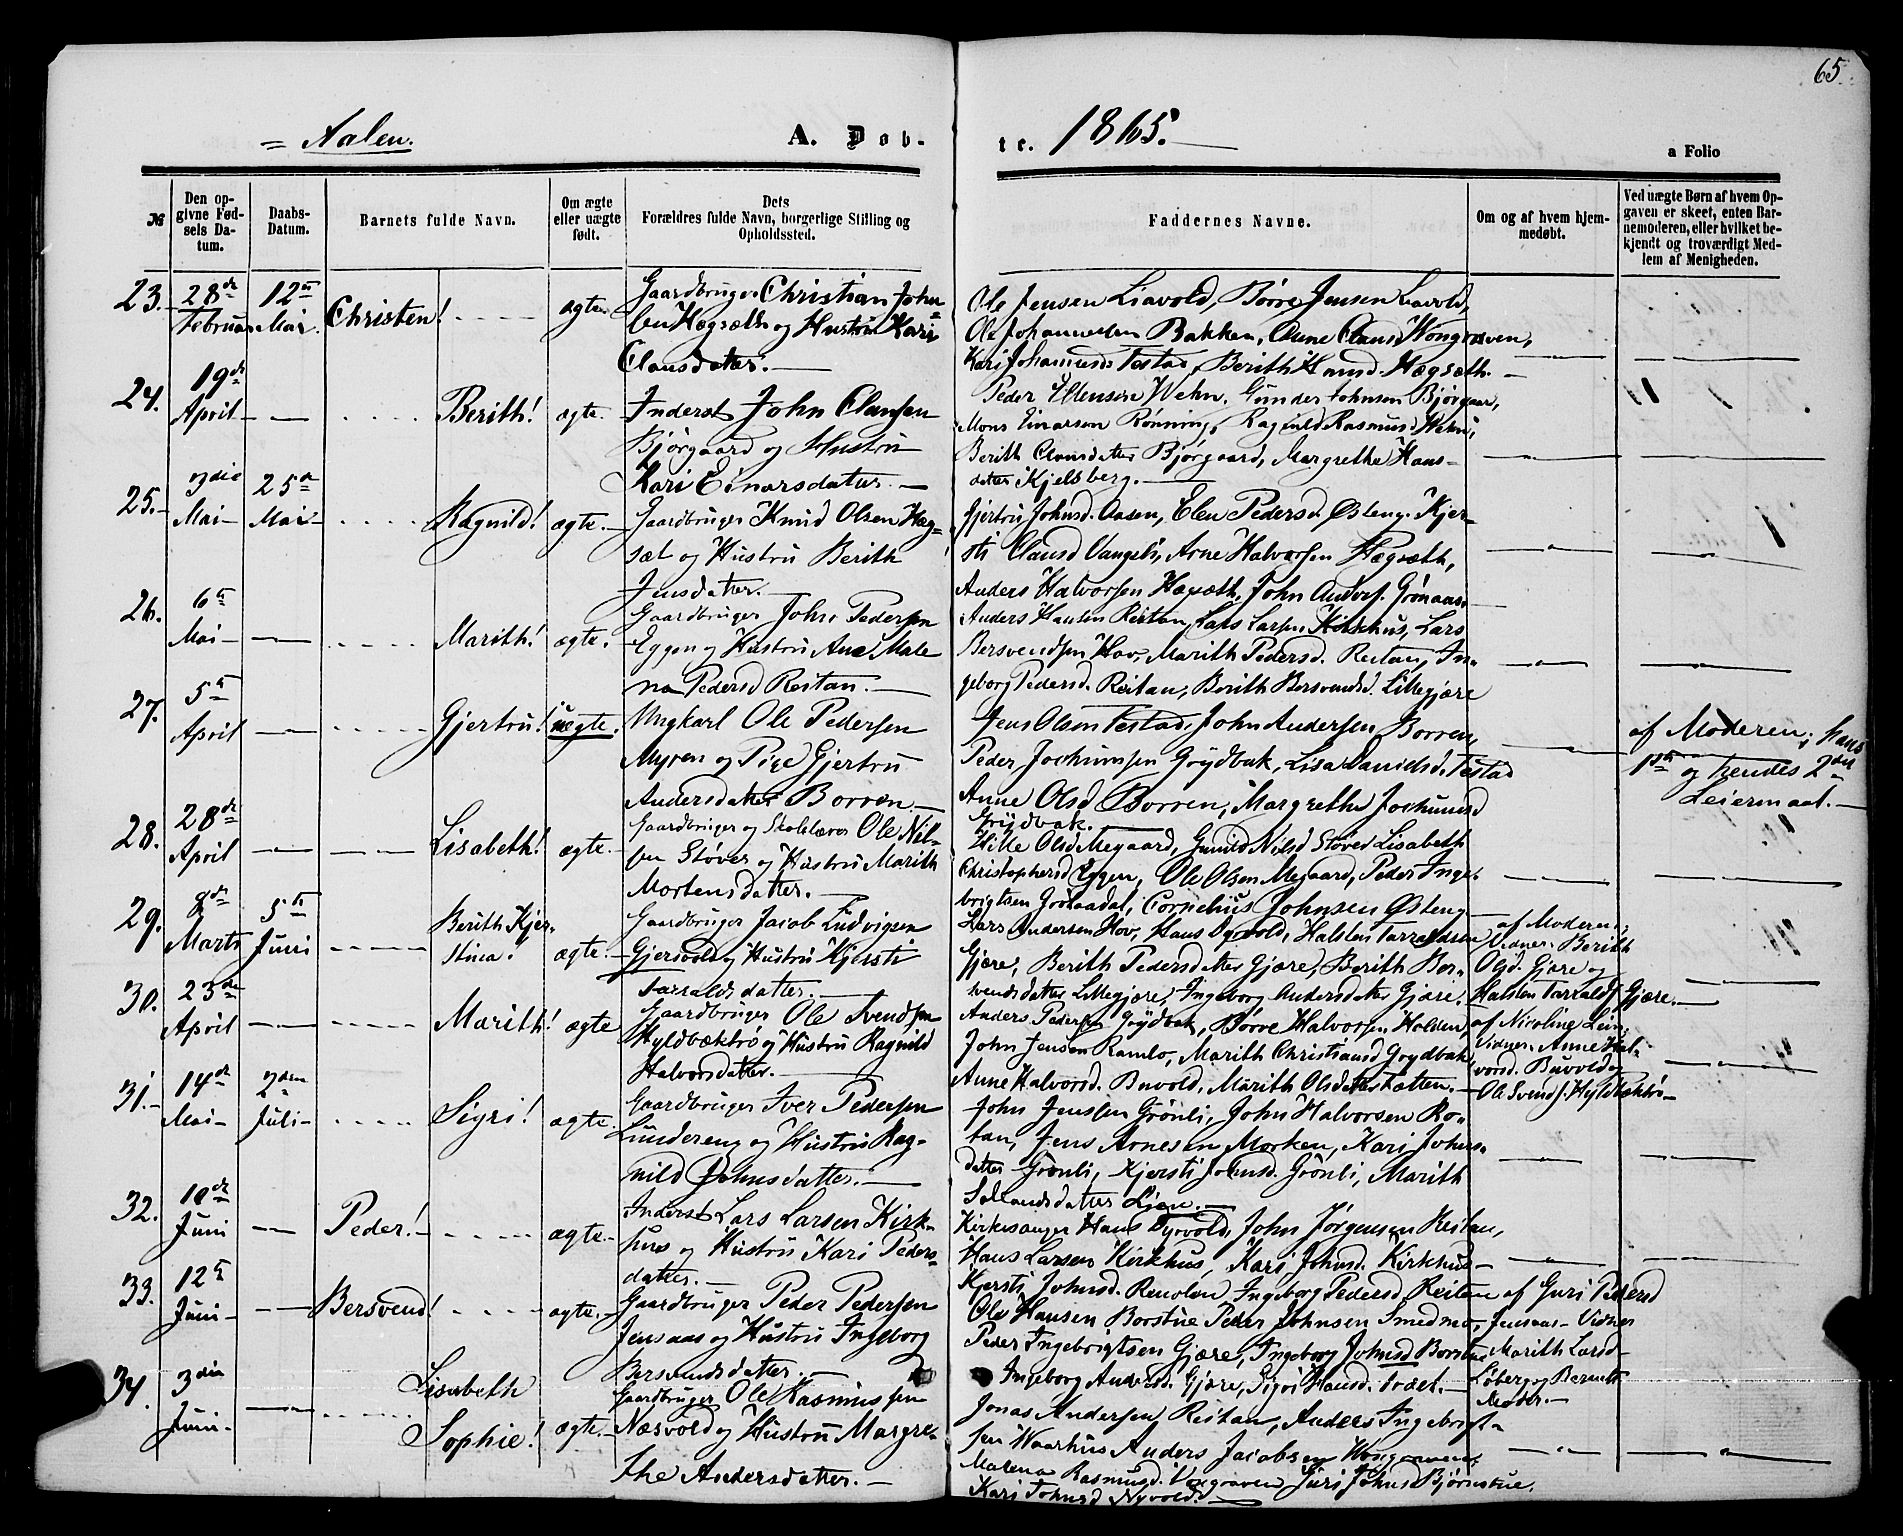 65.
= Aalen.
A. Døb-
te. 1865.
a Folio
№
Den op-
givne Fød-
sels Da-
tum.
Daabs-
Datum.
Barnets fulde Navn.
Om ægte
eller uægte
født.
Dets
Forældres fulde Navn, borgerlige Stilling og
Opholdssted.
Faddernes Navne.
Om og af hvem hjem-
medøbt.
Ved uægte Børn af hvem Op-
gaven er skeet, enten Bar-
nemoderen, eller hvilket be-
kjendt og troværdigt Med-
lem af Menigheden.
23. 28de Februar 12te Mai. Christen! ægte.
Gaardbruger Christian John-
sen Hægsæth og Hustru Kari
Clausdatter.
Ole Jensen Liavold, Børre Jensen Lavold,
Ole Johannesen Bakken, Anne Clausd Wongraven,
Kari Johannesd. Testad, Berith Knud. Hægsæth.
24. 19de April Berith! ægte.
Inderst John Clausen
Bjørgaard og Hustru
Kari Einarsdatter.
Peder Wehn, Gunder Johnsen Bjørgaar,
Mons Einarsen Rønning, Ragnild Rasmusd Wehn,
Berith Clausdatter Bjørgaard, Margrethe Hans-
datter Kjelsberg.
25. 3die Mai 25de Mai Ragnild! ægte.
Gaardbruger Knud Olsen Hæg-
sæt og Hustru Berith
Jensdatter.
Gjertru Johnsd. Aasen, Elen Pedersd. Østeng. Kjer-
sti Clausd Vangeli, Arne Halvorsen Hægsæth,
Anders Halvorsen Hægsæth, John Grønaas.
26. 6te Mai Marith! ægte.
Gaardbruger John Pedersen
Eggen og Hustru Ane Male
na Pedersd Reitan.
Anders Hansen Reitan, Lars Larsen Kirkhus, Lars
Bersvendsen Hov, Marith Pedersd. Reitan, In-
geborg Pedersd. Reitan, Berith Bersvendsd. Lillegjære
27. 5te April Gjertru! uægte.
Ungkarl Ole Pedersen
Myren og Pige Gjertru
Andersdatter Borren.
Jens Olsen Testad, John Andersen Borren,
Peder Jochumsen Grydbak, Lisa Davidsd. Testad
Anne Olsd Borren, Margrethe Jochumsd
Grydbak.
af Moderen; hans
1ste og hendes 2det
Leiermaal.
28. 28de April Lisabeth! ægte.
Gaardbruger og Skolelærer Ole Nil-
sen Støver og Hustru Marith
Mortensdatter.
Hille Olsd Megaard, Gunild Nilsd Støved Lisabeth
Christophersd Eggen, Ole Olsen Megaard, Peder Inge-
brigtsen Grønaadal, Cornelius Johnsen Østeng
29. 8de Marts 5te Juni Berith Kjer-
stina! ægte.
Gaardbruger Jacob Ludvigsen
Gjersvold og Hustru Kjersti
Tarraldsdatter.
Lars Andersen Hov, Hans Dyrvold, Halsten Tarraldsen
Gjære, Berith Pedersdatter Gjære, Berith Ber-
svendsdatter Lillegjære, Ingeborg Andersdatter Gjære.
af Moderen;
Vidner: Berith
Olsd. Gjære og
Halsten Tarraldsf Gjære.
30. 23de April Marith! ægte
Gaardbruger Ole Svendsen
Hyldbæktrø og Hustru Ragnild
Halvorsdatter.
Anders Pedersen Grydbak, Børre Halvorsen Holden
John Jensen Ramlo, Marith Christiansd Grydbak
Anne Halvorsd. Buvold, Marith Olsdatter Fløtten.
af Nicoline Lein;
Vidner: Anne Hal-
vorsd. Buvold og
Ole Svends. Hyldbæktrø
31. 14de Mai 2den Juli Sigri! ægte.
Gaardbruger Iver Pedersen
Lundereng og Hustru Rag-
nild Johnsdatter.
John Jensen Grønli, John Halvorsen Ro-
tan, Jens Arnesen Morken, Kari Johns-
datter Grønli, Kjersti Johnsd. Grønli, Marith
datter Lien.
32. 10de Juni Peder! ægte.
Inderst Lars Larsen Kirk-
hus og Hustru Kari Peders-
datter.
Kirkesanger Hans Dyrvold, John Jørgensen Reitan,
Hans Larsen Kirkhus, Kari Johnsd. Kirkhus
Kjersti Johnsd. Renolen, Ingeborg Pedersd Reitan
33. 12te Juni Bersvend! ægte.
Gaardbruger Peder Pedersen
Jensaas og Hustru Ingeborg
Bersvendsdatter.
Ole Hansen Borstue Peder Johnsen Smedmo,
Peder Ingebrigtsen Gjære, Ingeborg Johnsd Borstue
Ingeborg Andersd. Gjære, Sigri Hansd.
af Guri Pedersd
Jensaas Vidner
Marith Larsd
Løberg og Barnets
Moder.
34. 3die Juni Lisabeth
Sophie! ægte.
Gaardbruger Ole Rasmussen
Næsvold og Hustru Margre-
the Andersdatter.
Jonas Andersen Reitan, Anders Ingebrigt-
sen Waarhus Anders Jacobsen Wongraven,
Malena Rasmusd. Vongraven, Guri Johnsd Bjørnstue.
Kari Johnsd Nyvold.